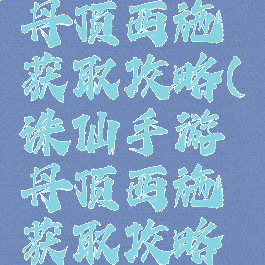 丹顶西施
获取攻略(
诛仙手游
丹顶西施
获取攻略